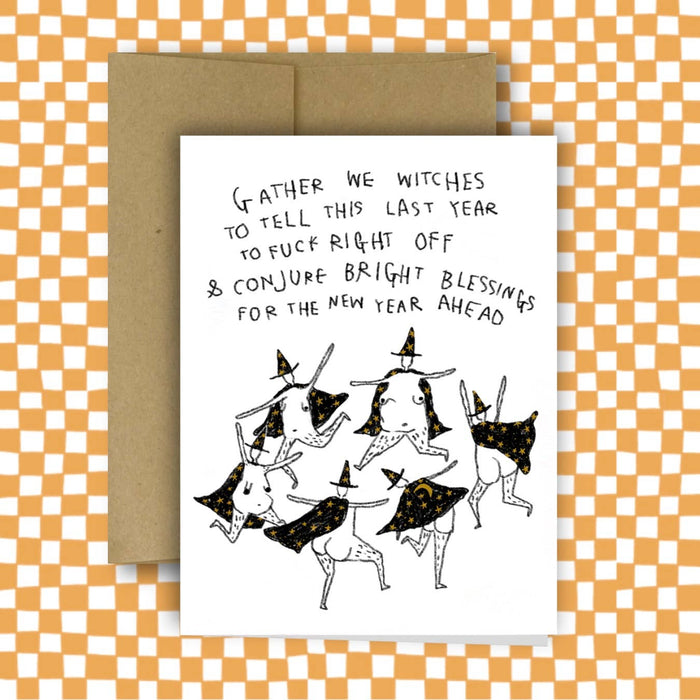 GATHER WE WITCHES
TO TELL THIS LAST YEAR
TO FUCK RIGHT OFF
& CONJURE BRIGHT BLESSINGS
FOR THE NEW YEAR AHEAD